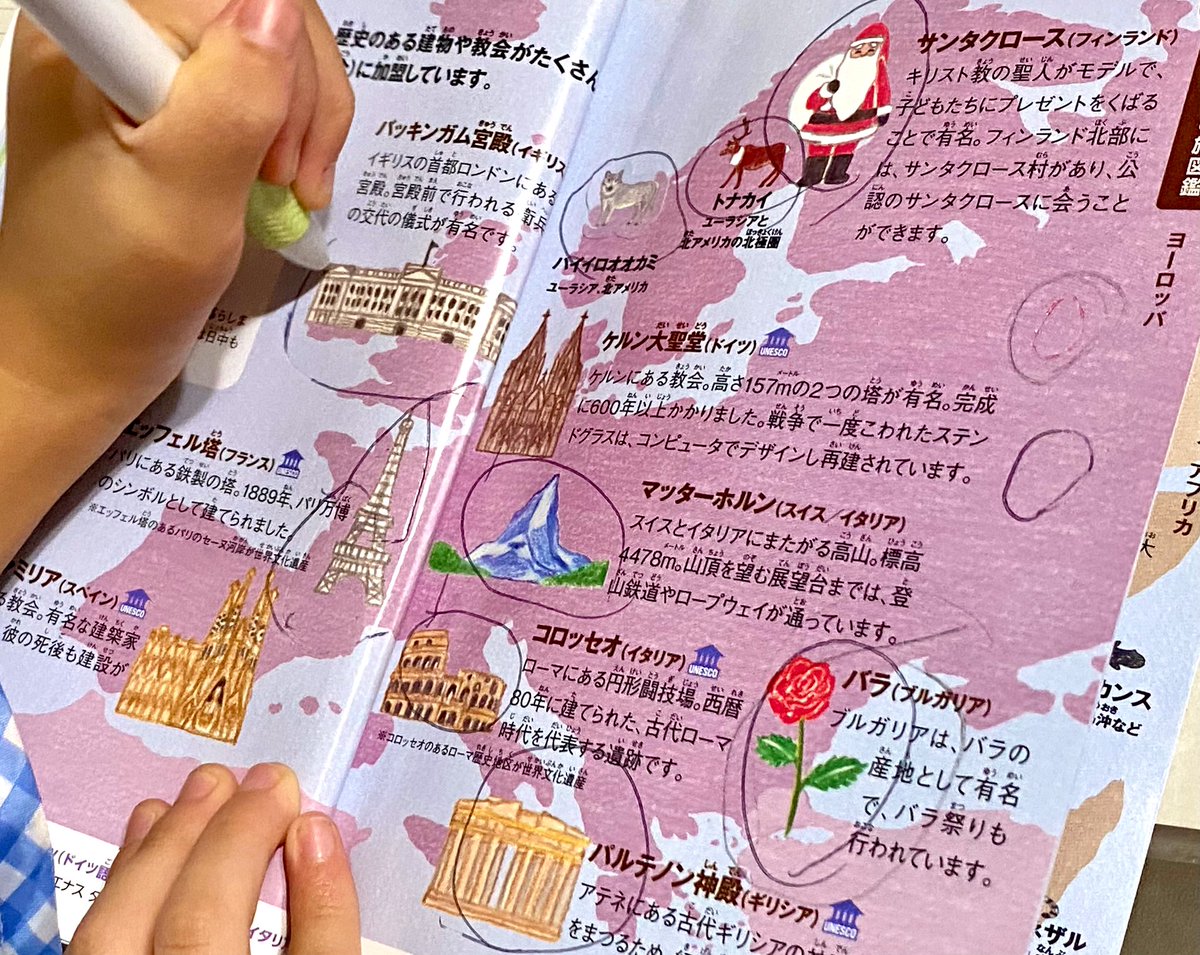 歴史のある建物や教会がたくさん
に加盟しています。
バッキンガム宮殿(イギリス
イギリスの首都ロンドンにある
宮殿。宮殿前で行われる衛兵
の交代の儀式が有名です。
サンタクロース(フィンランド)
キリスト教の聖人がモデルで、
子どもたちにプレゼントをくばる
ことで有名。フィンランド北部に
は、サンタクロース村があり、公
認のサンタクロースに会うこと
ができます。
トナカイ
ユーラシアと
北アメリカの北極圏
ハイイロオオカミ
ユーラシア、北アメリカ
図鑑
ヨーロッパ
アフリカ
ケルン大聖堂(ドイツ)
UNESCO
ケルンにある教会。高さ157mの2つの塔が有名。完成
に600年以上かかりました。戦争で一度こわれたステン
ドグラスは、コンピュータでデザインし再建されています。
エッフェル塔(フランス)
UNESCO
パリにある鉄製の塔。1889年、パリ万博
のシンボルとして建てられました。
※エッフェル塔のあるパリのセーヌ河岸が世界文化遺産
マッターホルン(スイス/イタリア)
スイスとイタリアにまたがる高山。標高
4478m。山頂を望む展望台までは、登
山鉄道やロープウェイが通っています。
ミリア(スペイン)
UNESCO
教会。有名な建築家
彼の死後も建設が
コロッセオ(イタリア)
UNESCO
ローマにある円形闘技場。西暦
80年に建てられた、古代ローマ
時代を代表する遺跡です。
※コロッセオのあるローマ歴史地区が世界文化遺産
バラ(ブルガリア)
ブルガリアは、バラの
産地として有名
で、バラ祭りも
行われています。
パルテノン神殿(ギリシア)
UNESCO
アテネにある古代ギリシアの
をまつるため
(ドイツ語
イタリ
カンス
沖など